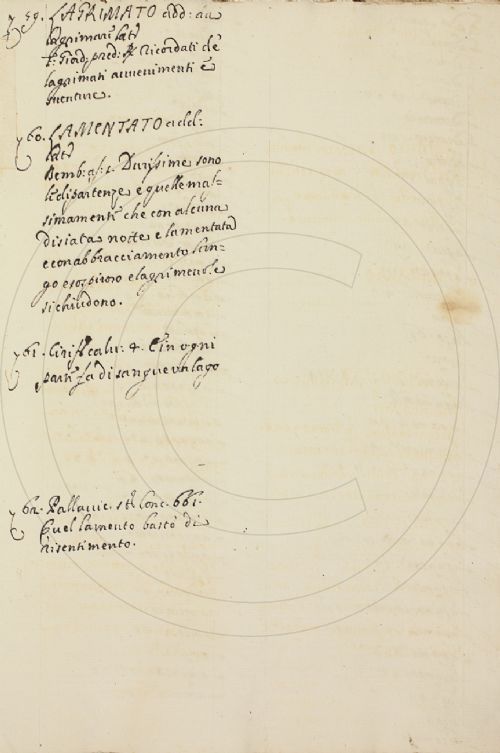 59. LAGRIMATO add: au
lagrimare latt
F: Giord. pred: R Ricordati de
lagrimati avvenimenti e
sventure.
60. LAMENTATO addd:
latt
Bemb: as: 1. Durissime sono
le dipartenze e quelle mas-
simamente che con alcuna
disiata notte e lamentata
e con abbracciamento lun-
go e sospiroso e lagrimevole
si chiudono.
61. Ciriff. calu: 4. E in ogni
parte fa di sangue un lago
62. Pallavic. st. Conc. 661.
Quel lamento bastò di
risentimento.
C